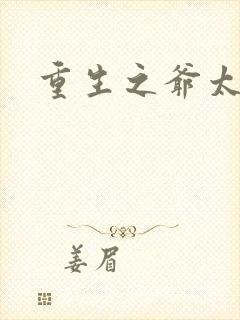 重生之爷太
姜眉